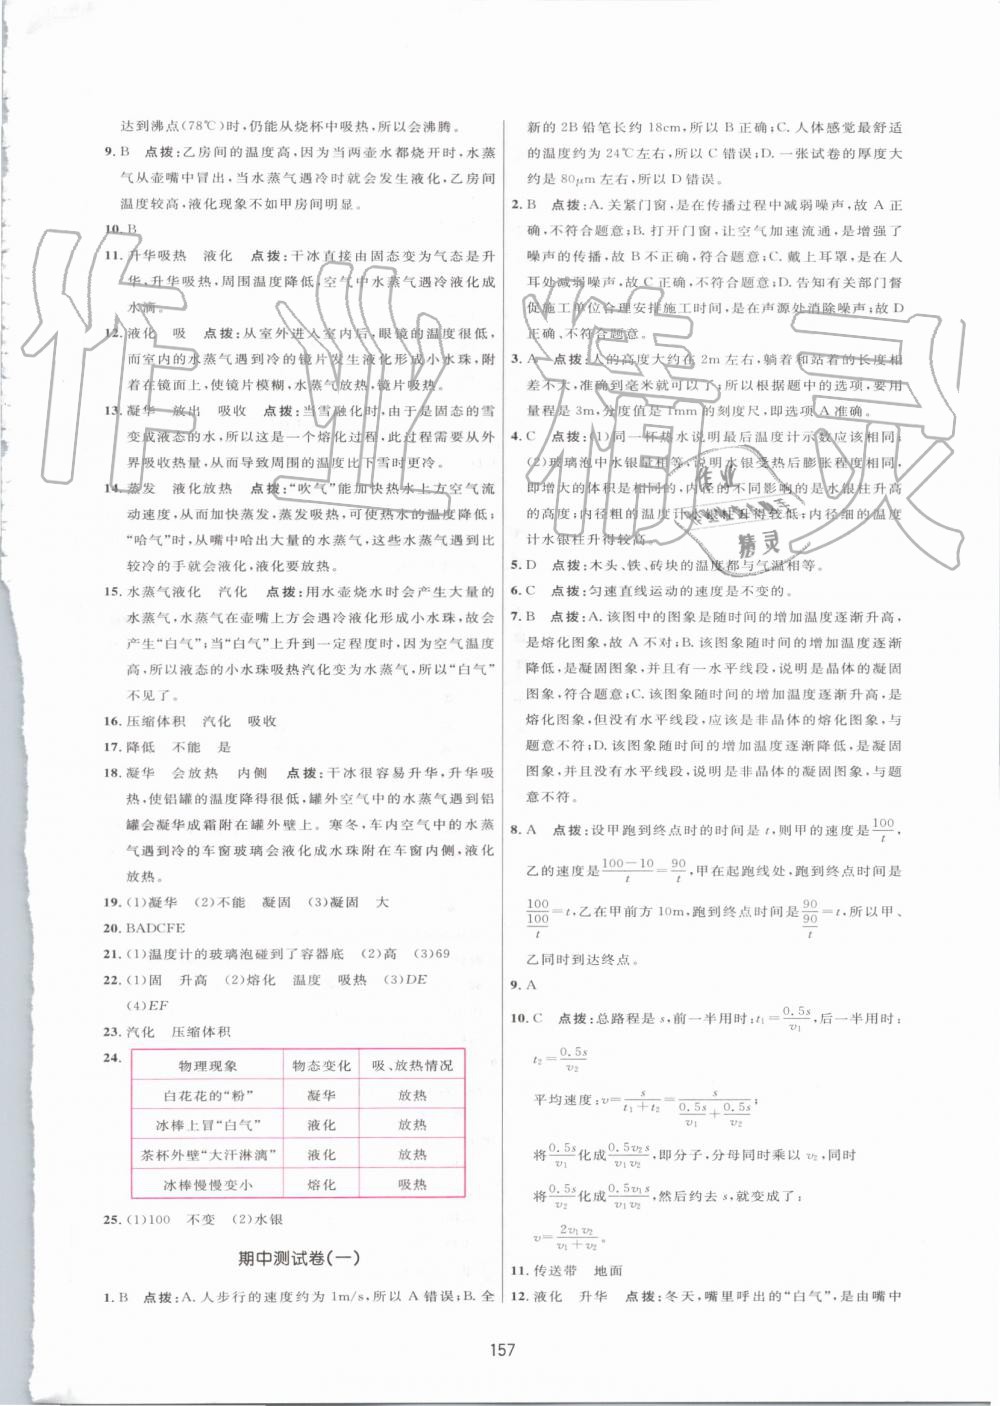 达到沸点(78℃)时,仍能从烧杯中吸热,所以会沸腾。
9. B 点拨:乙房间的温度高,因为当两壶水都烧开时,水蒸
气从壶嘴中冒出,当水蒸气遇冷时就会发生液化,乙房间
温度较高,液化现象不如甲房间明显。
10. B
11. 升华吸热 液化 点拨:干冰直接由固态变为气态是升
华,升华吸热,周围温度降低,空气中水蒸气遇冷液化成
水滴。
12. 液化 吸 点拨:从室外进入室内后,眼镜的温度很低,
而室内的水蒸气遇到冷的镜片发生液化形成小水珠,附
着在镜面上,使镜片模糊,水蒸气放热,镜片吸热。
13. 凝华 放出 吸收 点拨:当雪融化时,由于是固态的雪
变成液态的水,所以这是一个熔化过程,此过程需要从外
界吸收热量,从而导致周围的温度比下雪时更冷。
14. 蒸发 液化放热 点拨:“吹气”能加快热水上方空气流
动速度,从而加快蒸发,蒸发吸热,可使热水的温度降低;
“哈气”时,从嘴中哈出大量的水蒸气,这些水蒸气遇到比
较冷的手就会液化,液化要放热。
15. 水蒸气液化 汽化 点拨:用水壶烧水时会产生大量的
水蒸气,水蒸气在壶嘴上方会遇冷形成小水珠,故会
产生“白气”;当“白气”上升到一定程度时,因为空气温度
高,所以液态的小水珠吸热汽化为水蒸气,所以“白气”
不见了。
16. 压缩体积 汽化 吸收
17. 降低 不能 是
18. 凝华 会放热 内侧 点拨:干冰很容易升华,升华吸
热,使铝罐的温度降得很低,罐外空气中的水蒸气遇到铝
罐会凝华成霜附在罐外壁上。寒冬,车内空气中的水蒸
气遇到冷的车窗玻璃会液化成水珠附在车窗内侧,液化
放热。
19. (1)凝华 (2)不能 凝固 (3)凝固 大
20. BADCFE
21. (1)温度计的玻璃泡碰到了容器底 (2)高 (3)69
22. (1)固 升高 (2)熔化 温度 吸热 (3)DE
(4)EF
23. 汽化 压缩体积
24.
物理现象 物态变化 吸、放热情况
白花花的“粉” 凝华 放热
冰棒上冒“白气” 液化 放热
茶杯外壁“大汗淋漓” 液化 放热
冰棒慢慢变小 熔化 吸热
25. (1)100 不变 (2)水银
期中测试卷(一)
1. B 点拨:A. 人步行的速度约为 1m/s,所以 A 错误;B. 全
新的 2B 铅笔长约 18cm,所以 B 正确;C. 人体感觉最舒适
的温度约为 24℃左右,所以 C 错误;D. 一张试卷的厚度大
约是 80μm 左右,所以 D 错误。
2. B 点拨:A. 关紧门窗,是在传播过程中减弱噪声,故 A 正
确,不符合题意;B. 打开门窗,让空气加速流通,是增强了
噪声的传播,故 B 不正确,符合题意;C. 戴上耳罩,是在人
耳处减弱噪声,故 C 正确,不符合题意;D. 告知有关部门督
促施工单位合理安排施工时间,是在声源处消除噪声,故 D
正确,不符合题意。
3. A 点拨:人的高度大约在 2m 左右,躺着和站着的长度相
差不大,准确到毫米就可以了;所以根据题中的选项,要用
量程是 3m,分度值是 1mm 的刻度尺,即选项 A 准确。
4. C 点拨:(1)同一杯热水说明最后温度计示数应该相同;
(2)玻璃泡中水银量相等,说明水银受热后膨胀程度相同,
即增大的体积是相同的,内径的不同影响的是水银柱升高
的高度;内径粗的温度计水银柱升得较低;内径细的温度
计水银柱升得较高。
5. D 点拨:木头、铁、砖块的温度都与气温相等。
6. C 点拨:匀速直线运动的速度是不变的。
7. B 点拨:A. 该图中的图象是随时间的增加温度逐渐升高,
是熔化图象,故 A 不对;B. 该图象随时间的增加温度逐渐
降低,是凝固图象,并且有一水平线段,说明是晶体的凝固
图象,符合题意;C. 该图象随时间的增加温度逐渐升高,是
熔化图象,但没有水平线段,应该是非晶体的熔化图象,与
题意不符;D. 该图象随时间的增加温度逐渐降低,是凝固
图象,但没有水平线段,说明是非晶体的凝固图象,与
题意不符。
8. A 点拨:设甲跑到终点时的时间是 t,则甲的速度是100/t,
乙的速度是(100-10)/t=90/t,甲在起跑线处,跑到终点时间是
100/(100/t)=t,乙在甲前方 10m,跑到终点时间是90/(90/t)=t,所以甲、
乙同时到达终点。
9. A
10. C 点拨:总路程是 s,前一半用时:t₁=0.5s/v₁,后一半用时:
t₂=0.5s/v₂
平均速度:v=s/(t₁+t₂)=s/(0.5s/v₁+0.5s/v₂);
将0.5s/v₁化成0.5v₂s/v₁v₂,即分子,分母同时乘以 v₂,同时
将0.5s/v₂化成0.5v₁s/v₁v₂,然后约去 s,就变成了:
v=2v₁v₂/(v₁+v₂)。
11. 传送带 地面
12. 液化 升华 点拨:冬天,嘴里呼出的“白气”,是由嘴中
157
作业精灵
作业
精灵